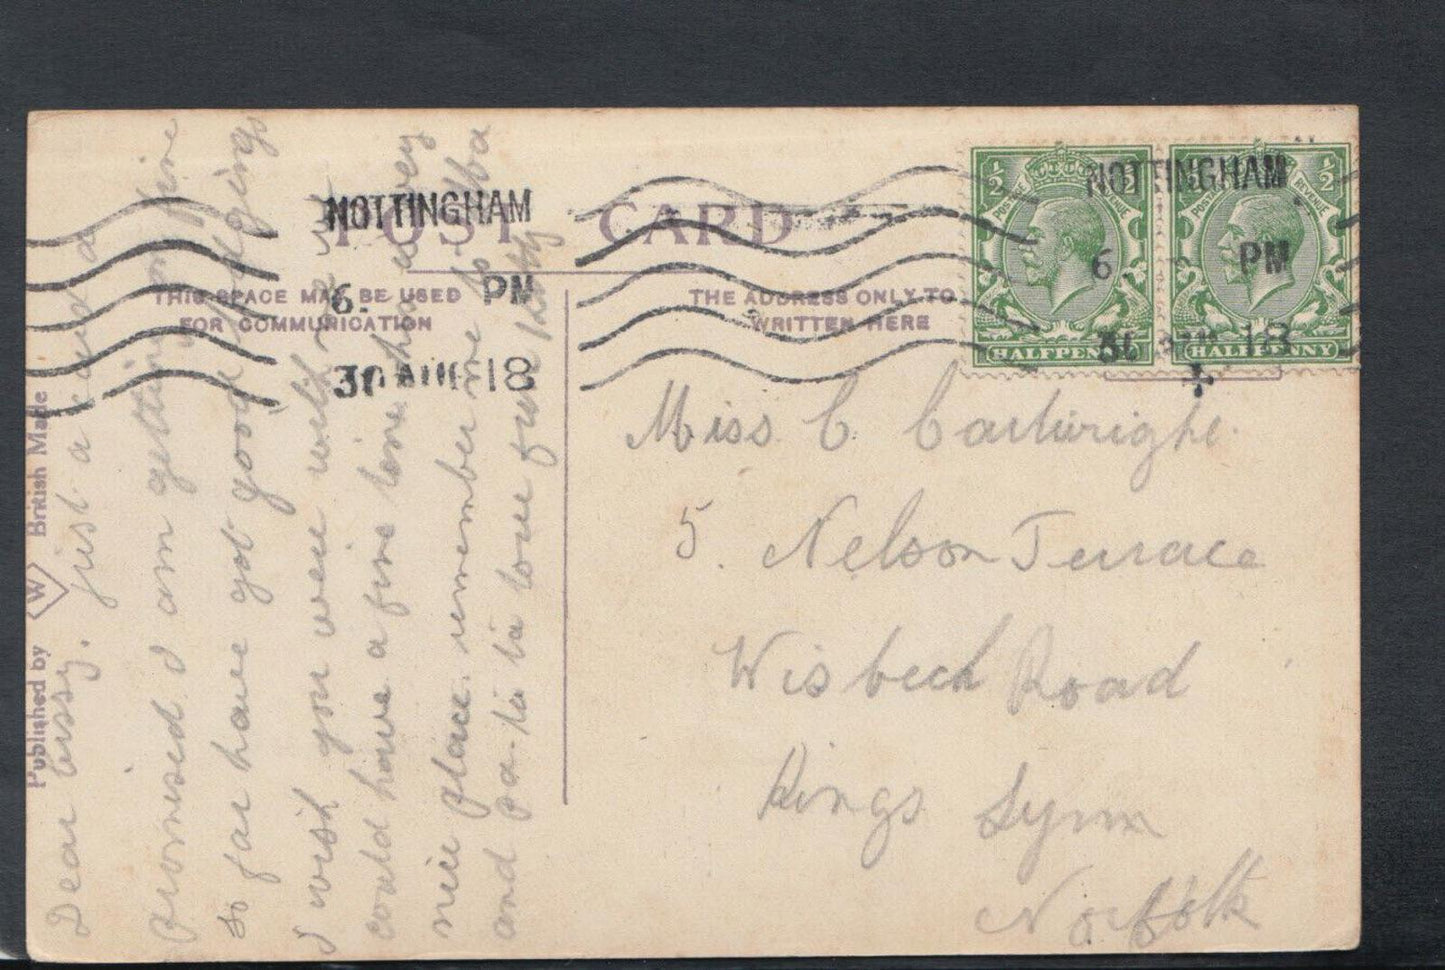 POST CARD
THIS SPACE MAY BE USED
FOR COMMUNICATION
THE ADDRESS ONLY TO
WRITTEN HERE
NOTTINGHAM
6. PM
30 AUG 18
NOTTINGHAM
6 PM
30 18
½ ½
POSTAGE REVENUE
HALFPENNY
½ ½
POSTAGE REVENUE
HALFPENNY
Published by W British Made
Dear Cissy. just a card as
promised I am getting on fine
so far have got good lodgings
I wish you were with me we
could have a fine time this very
nice place remember me to
and pa. ta ta love from
Miss C. Cartwright.
5. Nelson Terrace
Wisbech Road
Kings Lynn
Norfolk